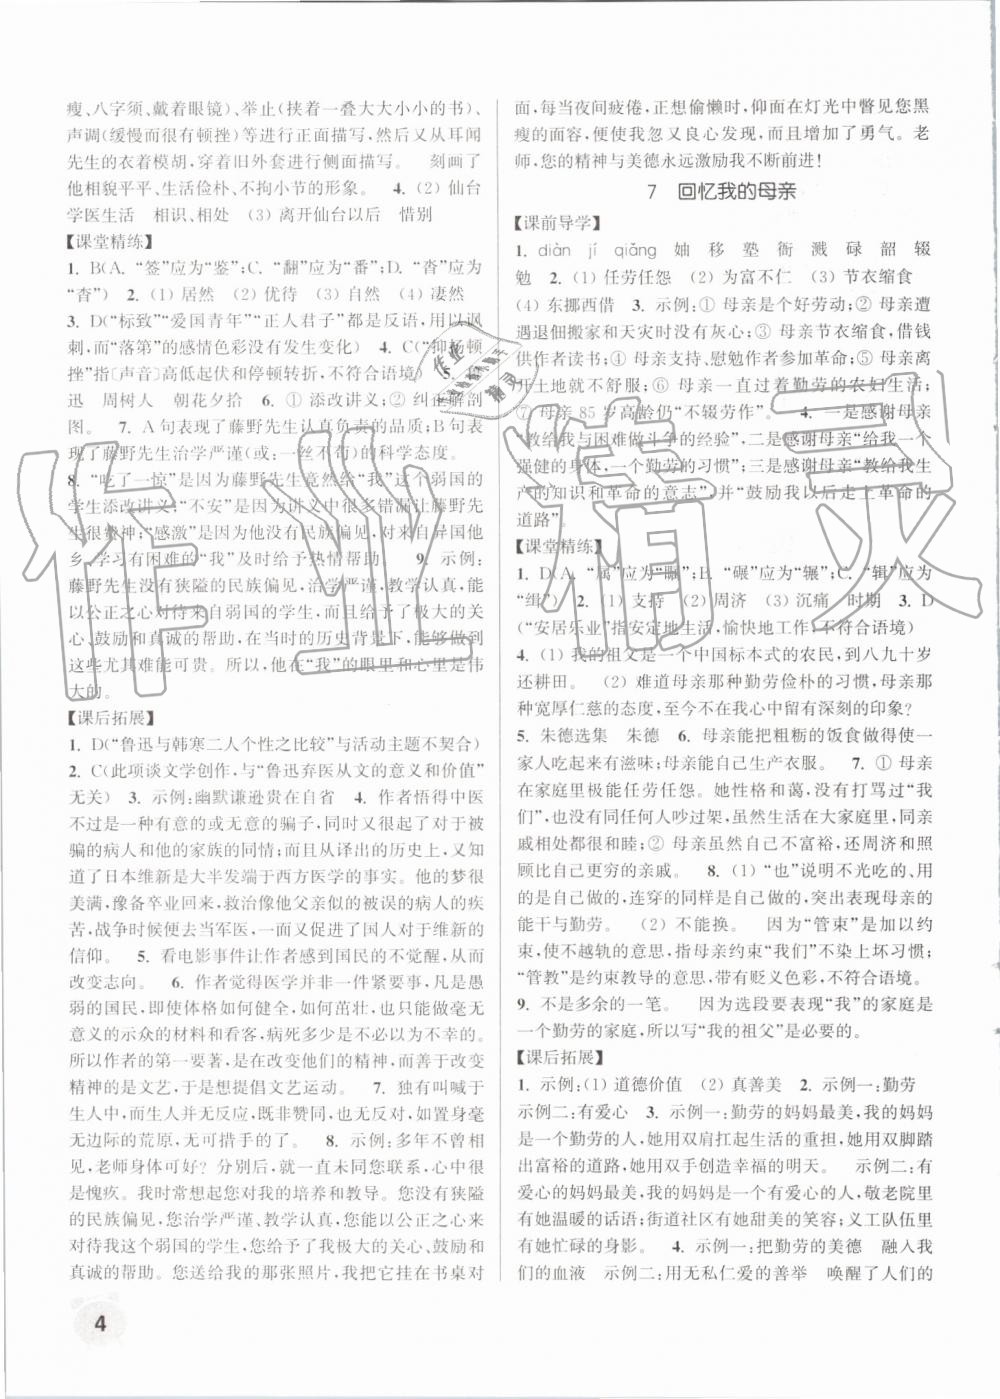 瘦、八字须、戴着眼镜)、举止(挟着一叠大大小小的书)、
声调(缓慢而很有顿挫)进行正面描写,然后又从耳闻
先生的衣着模胡,穿着旧外套进行侧面描写。 刻画了
他相貌平平、生活俭朴、不拘小节的形象。 4. (2) 仙台
学医生活 相识、相处 (3) 离开仙台以后 惜别
【课堂精练】
1. B(A. “签”应为“鉴”;C. “翻”应为“番”;D. “沓”应
为“杳”) 2. (1) 居然 (2) 优待 (3) 自然 (4) 凄然
3. D(“标致”“爱国青年”“正人君子”都是反语,用以讽
刺,而“落第”的感情色彩没有发生变化) 4. C(“抑扬顿
挫”指〔声音〕高低起伏和停顿转折,不符合语境) 5. 鲁
迅 周树人 朝花夕拾 6. ① 添改讲义;② 纠正解剖
图。 7. A句表现了藤野先生认真负责的品质;B句表
现了藤野先生治学严谨(或:一丝不苟)的科学态度。
8. “吃了一惊”是因为藤野先生竟然给“我”这个弱国的
学生添改讲义;“不安”是因为讲义中很多错漏让藤野先
生很费神;“感激”是因为他没有民族偏见,对来自异国他
乡、学习有困难的“我”及时给予热情帮助。 9. 示例:
藤野先生没有狭隘的民族偏见,治学严谨、教学认真,能
以公正之心对待来自弱国的学生,给了作者极大的关
心、鼓励和真诚的帮助。在当时的历史背景下,能够做到
这些尤其难能可贵。所以,他在“我”的眼里和心里是伟
大的。
【课后拓展】
1. D(“鲁迅与韩寒二人个性之比较”与活动主题不契合)
2. C(此项谈文学创作,与“鲁迅弃医从文的意义和价值”
无关) 3. 示例:幽默谦逊贵在自省 4. 作者悟得中医
不过是一种有意的或无意的骗子,同时又很起了对于被
骗的病人和他的家族的同情;而且从译出的历史上,又
知道了日本维新是大半发端于西方医学的事实。他的梦很
美满,豫备卒业回来,救治像他父亲似的被误的病人的疾
苦,战争时候便去当军医,一面又促进了国人对于维新的
信仰。 5. 看电影事件让作者感到国民的不觉醒,从而
改变志向。 6. 作者觉得医学并非一件紧要事,凡是愚
弱的国民,即使体格如何健全,如何茁壮,也只能做毫无
意义的示众的材料和看客,病死多少是不必以为不幸的。
所以作者的第一要著,是在改变他们的精神,而善于改变
精神的是文艺,于是想提倡文艺运动。 7. 独有叫喊于
生人中,而生人并无反应,既非赞同,也无反对,如置身毫
无边际的荒原,无可措手的了。 8. 示例:多年不曾相
见,老师身体可好? 分别后,就一直未同您联系,心中很
是愧疚。我时常想起您对我的培养和教导。您没有狭隘
的民族偏见,您治学严谨、教学认真,您能以公正之心来
对待我这个弱国的学生,您给了我极大的关心、鼓励和
真诚的帮助。您送给我的那张照片,我把它挂在书桌对
面,每当夜间疲倦,正想偷懒时,仰面在灯光中瞥见您黑
瘦的面容,便使我忽又良心发现,而且增加了勇气。老
师,您的精神与美德永远激励我不断前进!
7 回忆我的母亲
【课前导学】
1. diàn jí qiǎng 妯 移 塾 衙 溅 碌 韶 辍
勉 2. (1) 任劳任怨 (2) 为富不仁 (3) 节衣缩食
(4) 东挪西借 3. 示例:① 母亲是个好劳动;② 母亲遭
遇退佃搬家和天灾时没有灰心;③ 母亲节衣缩食,借钱
供作者读书;④ 母亲支持、慰勉作者参加革命;⑤ 母亲离
开土地就不舒服;⑥ 母亲一直过着勤劳的农妇生活;
⑦ 母亲85岁高龄仍“不辍劳作”。 4. 一是感谢母亲
“教给我与困难做斗争的经验”,二是感谢母亲“给我一个
强健的身体,一个勤劳的习惯”;三是感谢母亲“教给我生
产的知识和革命的意志”,并“鼓励我以后走上革命的
道路”。
【课堂精练】
1. D(A. “属”应为“瞩”;B. “碾”应为“辗”;C. “辑”应为
“缉”) 2. (1) 支持 (2) 周济 (3) 沉痛 时期 3. D
(“安居乐业”指安定地生活,愉快地工作,不符合语境)
4. (1) 我的祖父是一个中国标本式的农民,到八九十岁
还耕田。 (2) 难道母亲那种勤劳俭朴的习惯,母亲那
种宽厚仁慈的态度,至今不在我心中留有深刻的印象?
5. 朱德选集 朱德 6. 母亲能把粗粝的饭食做得使一
家人吃起来有滋味;母亲能自己生产衣服。 7. ① 母亲
在家庭里极能任劳任怨。她性格和蔼,没有打骂过“我
们”,也没有同任何人吵过架,使全家生活在大家庭里,同亲
戚相处都很和睦;② 母亲虽自己不富裕,还周济和照
顾比自己更穷的亲戚。 8. (1) “也”说明不光吃的
是自己做的,连穿的同样是自己做的,表现了母亲的
能干与勤劳。 (2) 不能换。 因为“管束”是加以约
束,使不越轨的意思,指母亲约束“我们”不染上坏习惯;
“管教”是约束教导的意思,带有贬义色彩,不符合语境。
9. 不是多余的一笔。 因为选段要表现“我”的家庭是
一个勤劳的家庭,所以写“我的祖父”是必要的。
【课后拓展】
1. 示例:(1) 道德价值 (2) 真善美 2. 示例一:勤劳
示例二:有爱心 3. 示例一:勤劳的妈妈最美,我的妈妈
是一个勤劳的人,她用双肩扛起生活的重担,她用双脚踏
出富裕的道路,她用双手创造幸福的明天。 示例二:有
爱心的妈妈最美,我的妈妈是一个有爱心的人,敬老院里
有她温暖的话语;街道社区有她甜美的笑容;义工队伍里
有她忙碌的身影。 4. 示例一:把勤劳的美德 融入人
们的血液 示例二:用无私仁爱的善举 唤醒了人们的
4
作业精灵